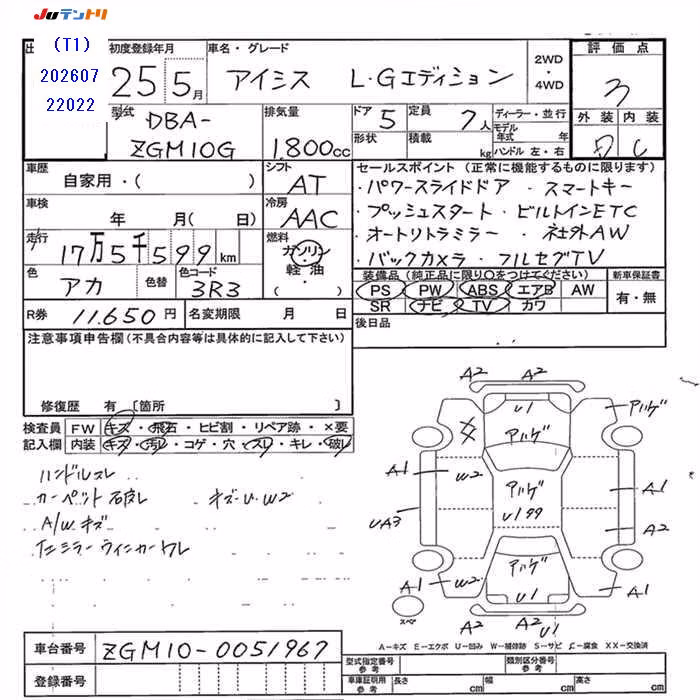 JUテントリ
(T1)
202607
22022
初度登録年月
25 5月
車名・グレード
アイシス L・Gエディション
2WD
・
4WD
評価点
3
外装 内装
C
型式
DBA-
ZGM10G
排気量
1,800cc
ドア 5
形状
定員 7人
積載 kg
ディーラー・並行
モデル年式 年
ハンドル 左・右
車歴
自家用・( )
シフト
AT
セールスポイント(正常に機能するものに限ります)
・パワースライドドア ・スマートキー
・プッシュスタート・ビルトインETC
・オートリトラミラー ・社外AW
・バックカメラ・フルセグTV
車検
年 月( 日)
冷房
AAC
走行
17万5千599km
燃料
ガソリン
・
軽油
( )
色
アカ
色替
色コード
3R3
装備品(純正品に限り○をつけてください)
PS PW ABS エアB AW
SR ナビ TV カワ
新車保証書
有・無
R券 11,650円
名変期限 月 日
後日品
注意事項申告欄(不具合内容等は具体的に記入して下さい)
修復歴 有〔箇所 〕
検査員
記入欄
FW キズ・飛石・ヒビ割・リペア跡・×要
内装 キズ・汚レ・コゲ・穴・スレ・キレ・破レ
ハンドルスレ
カーペット破レ キズ・U・W2
A/Wキズ
左ミラーウィンカーワレ
A2 A2
U1
アハゲ
アハゲ
A1
W2
アハゲ
U199
A1
UA3
A2
アハゲ
A1
W2
A1
スペア
A2 A2
U1
A=キズ E=エクボ U=凹み W=補修跡 S=サビ C=腐食 XX=交換済
車台番号 ZGM10-0051967
登録番号
型式指定番号
参考
類別区分番号
参考
車庫証明用
参考
長さ cm 幅 cm 高さ cm